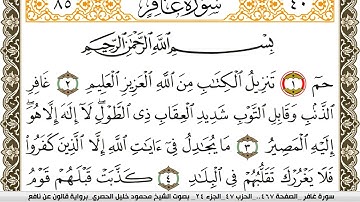 ٤٠ سُورَةُ غَافِرٍ ٨٥
بِسْمِ اللَّهِ الرَّحْمَٰنِ الرَّحِيمِ
حمٓ ١ تَنزِيلُ الْكِتَٰبِ مِنَ اللَّهِ الْعَزِيزِ الْعَلِيمِ ٢ غَافِرِ
الذَّنۢبِ وَقَابِلِ التَّوْبِ شَدِيدِ الْعِقَابِ ذِي الطَّوْلِ لَآ إِلَٰهَ إِلَّا هُوَ
إِلَيْهِ الْمَصِيرُ ٣ مَا يُجَٰدِلُ فِي ءَايَٰتِ اللَّهِ إِلَّا الَّذِينَ كَفَرُوا
فَلَا يَغْرُرْكَ تَقَلُّبُهُمْ فِي الْبِلَٰدِ ٤ كَذَّبَتْ قَبْلَهُمْ قَوْمُ
سورة غافر . الصفحة ٤٦٧. الحزب ٤٧ .الجزء ٢٤ . بصوت الشيخ محمود خليل الحصري .برواية قالون عن نافع